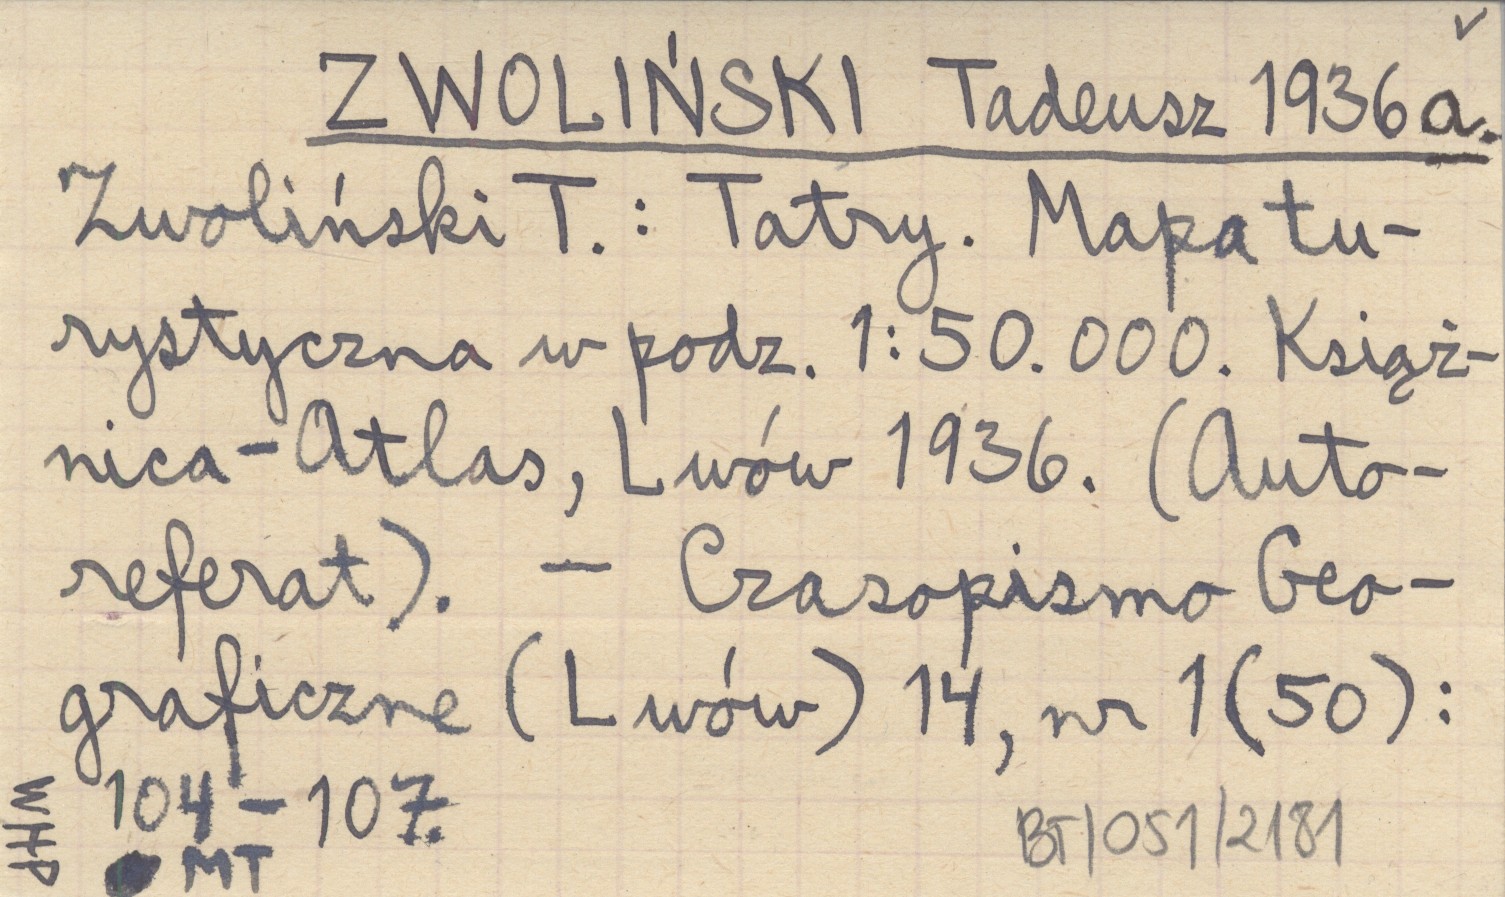 ZWOLIŃSKI Tadeusz 1936a.
Zwoliński T.: Tatry. Mapa tu-
rystyczna w podz. 1:50.000. Książ-
nica-Atlas, Lwów 1936. (Auto-
referat). — Czasopismo Geo-
graficzne (Lwów) 14, nr 1(50):
104-107.
WHP
MT
BT/051/2181